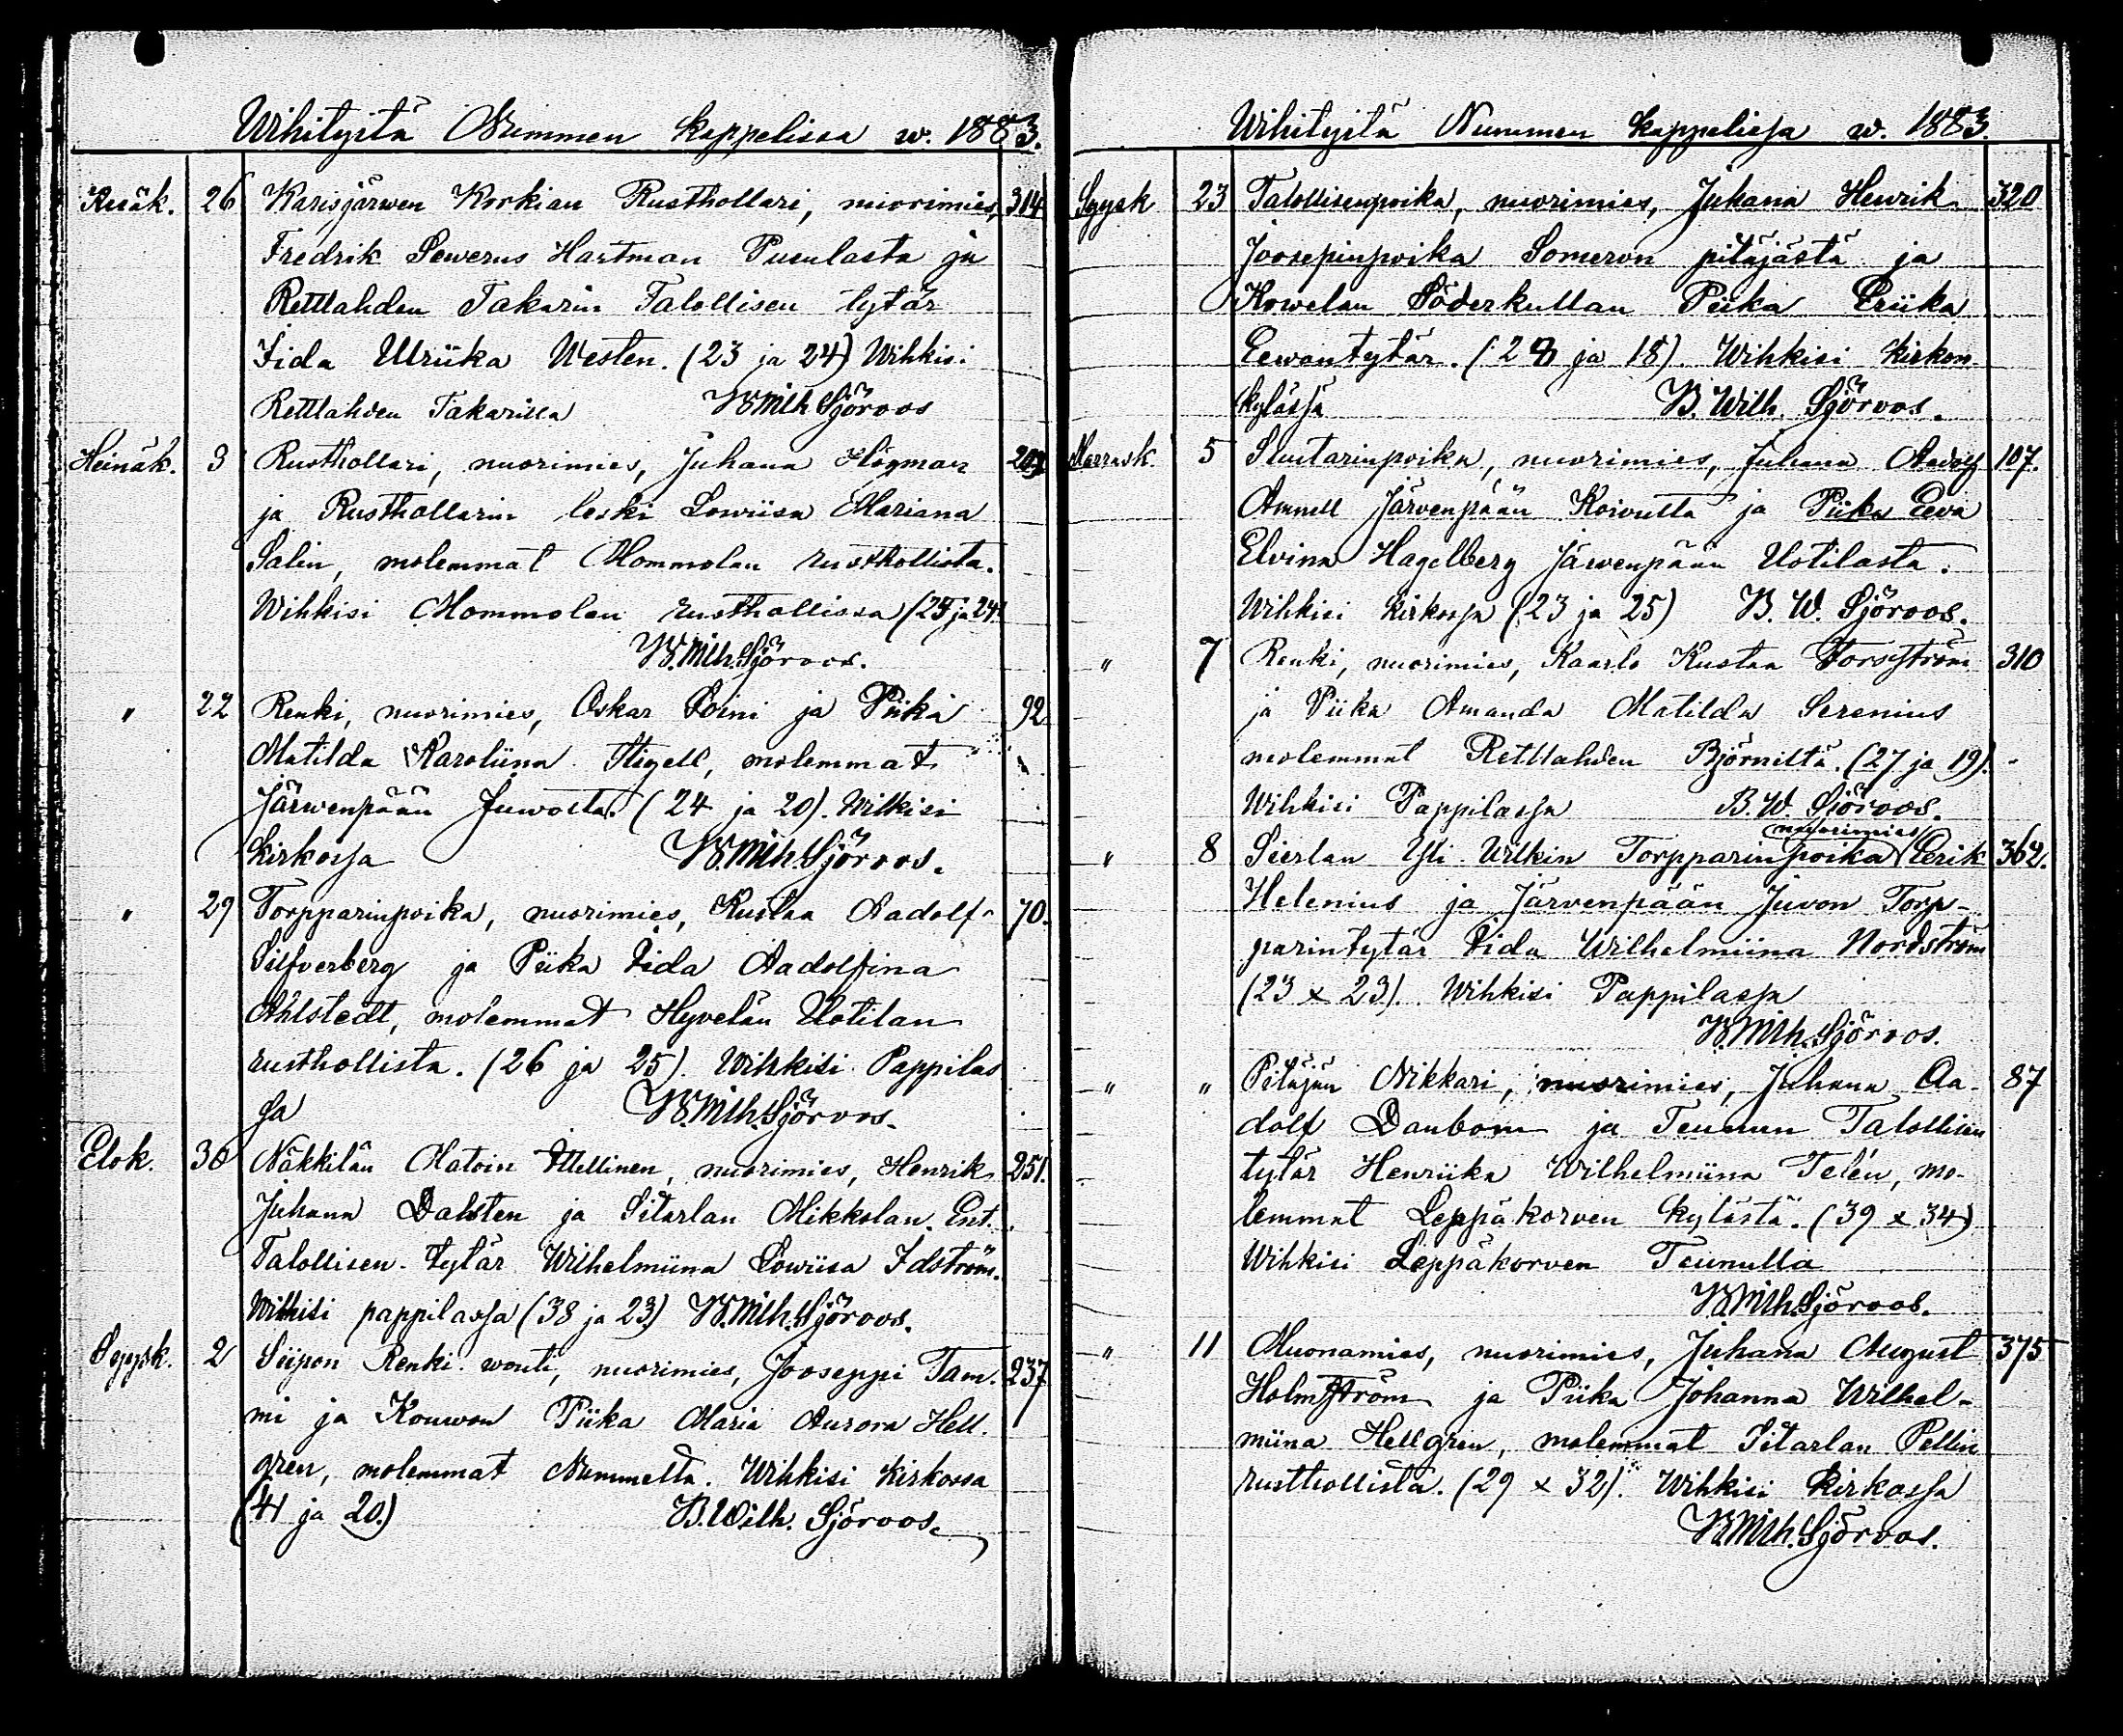 Wihityitä Nummen kappelissa w. 1883.
Kesäk. 26 Karisjärwen Korkian Rusthollari, nuorimies, 314
Fredrik Sewerus Hartman Pusulasta ja
Rettlahden Takarin Talollisen tytär
Iida Ulriika Westen. (23 ja 24) Wihkisi
Rettlahden Takarilla W. Wilh. Sjöroos
Heinäk. 3 Rusthollari, nuorimies, Juhana Högman 203
ja Rusthollarin leski Lowiisa Mariana
Salin, molemmat Mommolan rusthollista.
Wihkisi Mommolan rusthollissa (25 ja 24)
B. Wilh. Sjöroos.
" 22 Renki, nuorimies, Oskar Soini ja Piika 92
Matilda Karoliina Stigell, molemmat
Järwenpään Juwolta. (24 ja 20). Wihkisi
kirkossa B. Wilh. Sjöroos.
" 29 Torpparinpoika, nuorimies, Kustaa Aadolf 70.
Silfverberg ja Piika Iida Aadolfina
Ahlstedt, molemmat Hyvelän Uotilan
rusthollista. (26 ja 25). Wihkisi Pappilas
sa B. Wilh. Sjöroos.
Elok. 30 Näkkilän Matoin Itellinen, nuorimies, Henrik 251.
Juhana Dahlsten ja Sitarlan Mikkolan. Ent.
Talollisen tytär Wilhelmiina Lowiisa Idström.
Wihkisi pappilassa (38 ja 23) B. Wilh. Sjöroos.
Syysk. 2 Siipon Renki wouti, nuorimies, Jooseppi Tam- 237
mi ja Kouwon Piika Maria Aurora Hell-
gren, molemmat Nummelta. Wihkisi kirkossa
(41 ja 20.) B. Wilh. Sjöroos.
Wihityitä Nummen kappelissa w. 1883.
Syysk 23 Talollisenpoika, nuorimies, Juhana Henrik 320
Joosepinpoika Someron pitäjästä ja
Kowelan Söderkullan Piika Eriika
Eewantytär. (28 ja 18). Wihkisi kirkon
kylässä B. Wilh. Sjöroos.
Marrask. 5 Suutarinpoika, nuorimies, Juhana Aadolf 107.
Amnell Järvenpään Koivulta ja Piika Eeva
Elvina Hagelberg Järwenpään Uotilasta.
Wihkisi kirkossa (23 ja 25) B. W. Sjöroos.
" 7 Renki, nuorimies, Kaarlo Kustaa Forsström 310
ja Piika Amanda Matilda Serenius
molemmat Rettlahden Björniltä. (27 ja 19).
Wihkisi Pappilassa B. W. Sjöroos.
nuorimies
" 8 Sierlan Yli Wilkin Torpparinpoika Eerik 362.
Helenius ja Järvenpään Juvon Torp-
parintytär Iida Wilhelmiina Nordström
(23 x 23). Wihkisi Pappilassa
B. Wilh. Sjöroos.
" " Pitäjän Nikkari, nuorimies, Juhana Aa- 87
dolf Danbom ja Teunun Talollisen
tytär Henriika Wilhelmiina Telén, mo-
lemmat Leppäkorven kylästä. (39 x 34)
Wihkisi Leppäkorven Teunulla
B. Wilh. Sjöroos.
" 11 Muonamies, nuorimies, Juhana August 375
Holmström ja Piika Johanna Wilhel-
miina Hellgren, molemmat Sitarlan Pellin
rusthollista. (29 x 32). Wihkisi kirkossa
B. Wilh. Sjöroos.